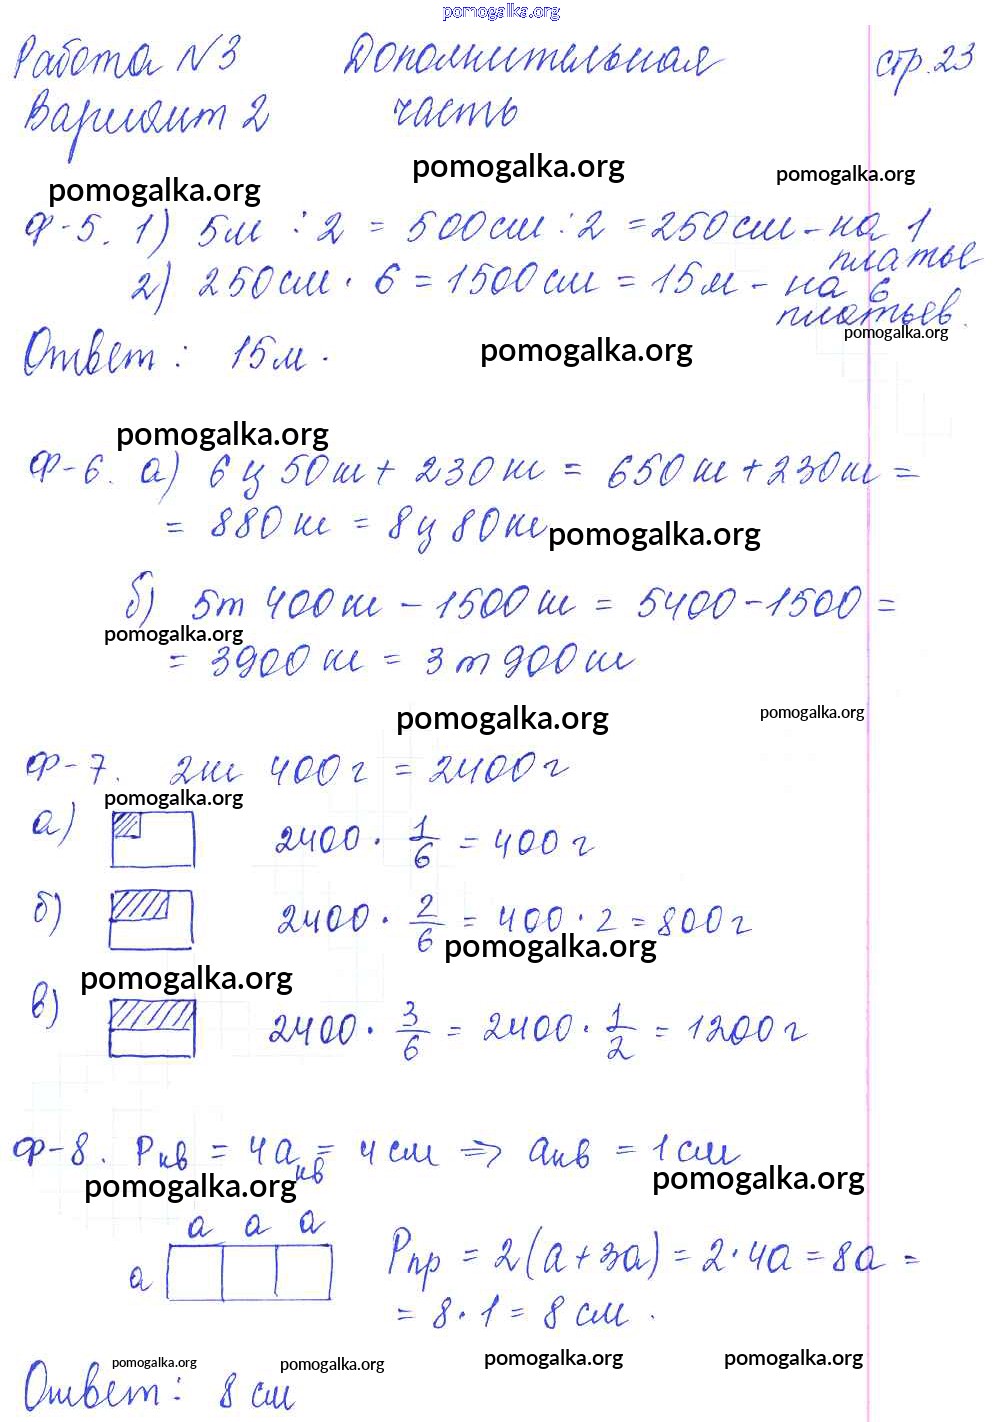 pomogalka.org
Работа N3 Дополнительная стр.23
Вариант 2 часть
pomogalka.org pomogalka.org pomogalka.org
Ф-5. 1) 5м : 2 = 500см : 2 = 250см - на 1
платье
2) 250см · 6 = 1500см = 15м - на 6
платьев.
pomogalka.org
Ответ : 15м. pomogalka.org
pomogalka.org
Ф-6. а) 6ц 50кг + 230кг = 650кг + 230кг =
= 880кг = 8ц 80кг pomogalka.org
б) 5т 400кг - 1500кг = 5400 - 1500 =
pomogalka.org
= 3900кг = 3т 900кг
pomogalka.org pomogalka.org
Ф-7. 2кг 400г = 2400г
pomogalka.org
а) 2400 · 1/6 = 400г
б) 2400 · 2/6 = 400 · 2 = 800г
pomogalka.org
pomogalka.org
в) 2400 · 3/6 = 2400 · 1/2 = 1200г
Ф-8. Pкв = 4aкв = 4см => aкв = 1см
pomogalka.org pomogalka.org
a a a
a Pпр = 2(a+3a) = 2·4a = 8a =
= 8·1 = 8 см.
pomogalka.org pomogalka.org pomogalka.org pomogalka.org
Ответ : 8 см